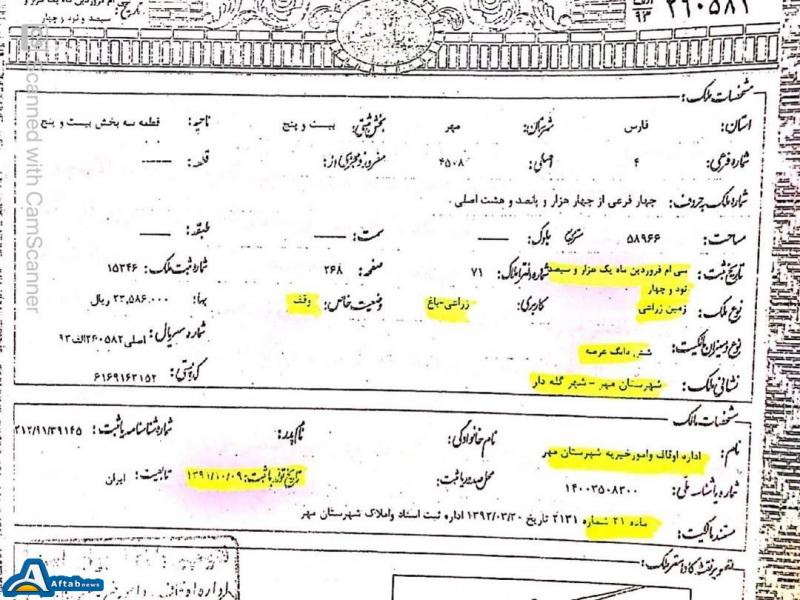 ۲۶۰۵۸۲
الف
۹۳
تاریخ: سی ام فروردین ماه یک هزار و
سیصد و نود و چهار
Scanned with CamScanner
مشخصات ملک:
استان: فارس شهرستان: مهر بخش ثبتی: بیست و پنج ناحیه: قطعه سه بخش بیست و پنج
شماره فرعی: ۴ اصلی: ۴۵۰۸ مفروز و مجزی از: قطعه:
شماره ملک به حروف: چهار فرعی از چهار هزار و پانصد و هشت اصلی.
مساحت: ۵۸۹۶۶ مترمربع بلوک: سمت: طبقه:
تاریخ ثبت: سی ام فروردین ماه یک هزار و سیصد شماره دفتر املاک: ۷۱ صفحه: ۲۶۸ شماره ثبت ملک: ۱۵۲۴۶
نود و چهار
نوع ملک: زمین زراعتی کاربری: زراعتی-باغ وضعیت خاص: وقف بها: ۲۳,۵۸۶,۰۰۰ ریال
نوع و میزان مالکیت: شش دانگ عرصه شماره سریال: اصلی۲۶۰۵۸۲الف۹۳
نشانی ملک: شهرستان مهر - شهر گله دار کد پستی: ۶۱۶۹۱۶۳۱۵۲
مشخصات مالک
نام: اداره اوقاف وامورخیریه شهرستان مهر نام خانوادگی: نام پدر: شماره شناسنامه یا ثبت: ۲۱۲/۹۱/۳۹۱۴۵
شماره یا شناسه ملی: ۱۴۰۰۳۵۰۸۳۰۰ محل صدور یا ثبت: تاریخ تولد یا ثبت: ۱۳۹۱/۱۰/۰۹ تابعیت: ایران
مستند مالکیت: ماده ۲۱ شماره ۲۱۳۱ تاریخ ۱۳۹۲/۰۳/۲۰ اداره ثبت اسناد واملاک شهرستان مهر
تصویر نقشه کاداستر ملک:
Aftabnews